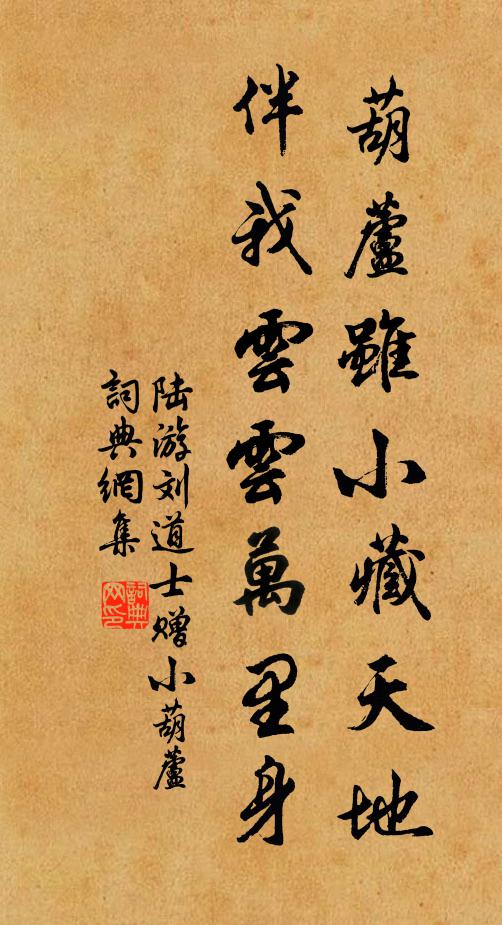 葫蘆雖小藏天地
伴我雲雲萬里身
陆游刘道士赠小葫蘆
詞典網集
詞典网印